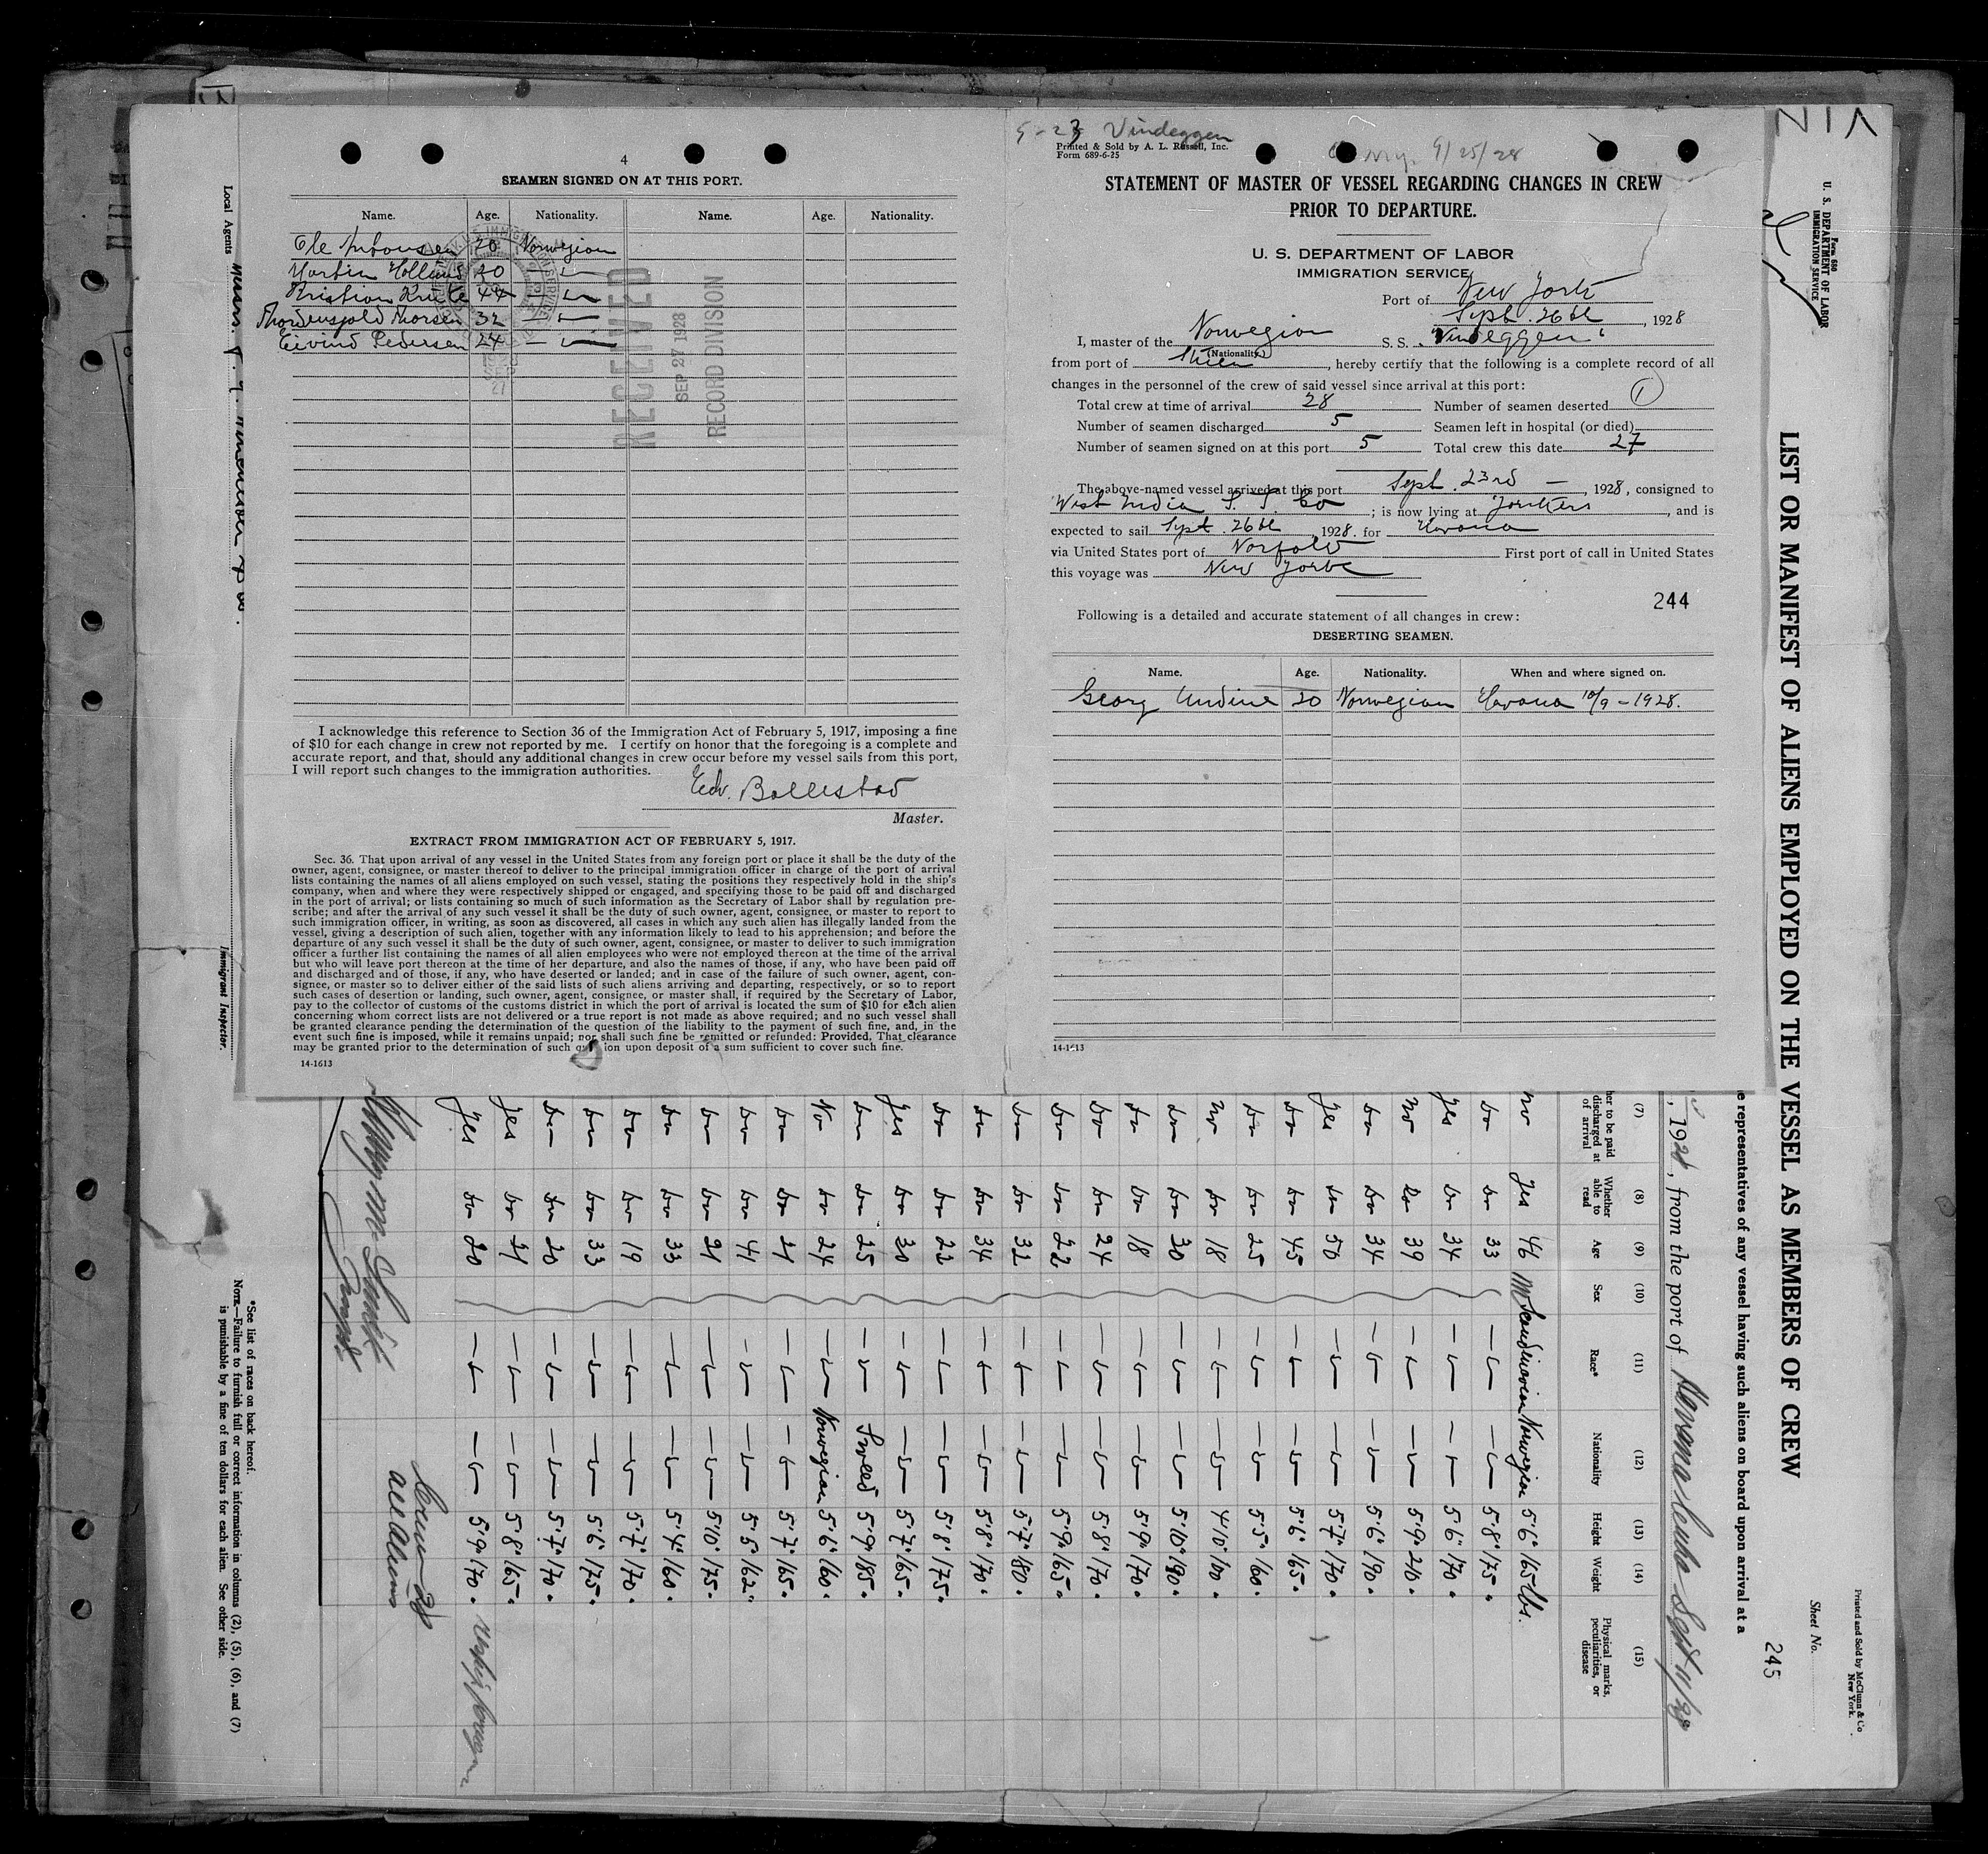 4
SEAMEN SIGNED ON AT THIS PORT.
Name. Age. Nationality. Name. Age. Nationality.
Ole 20 Norwegian
20 — " —
Kristian 44 — " —
Thorsen 32 — " —
Eivind Pedersen 24 — " —
RECEIVED
SEP 27 1928
RECORD DIVISION
I acknowledge this reference to Section 36 of the Immigration Act of February 5, 1917, imposing a fine
of $10 for each change in crew not reported by me. I certify on honor that the foregoing is a complete and
accurate report, and that, should any additional changes in crew occur before my vessel sails from this port,
I will report such changes to the immigration authorities.
Edv. Bollestad
Master.
EXTRACT FROM IMMIGRATION ACT OF FEBRUARY 5, 1917.
Sec. 36. That upon arrival of any vessel in the United States from any foreign port or place it shall be the duty of the
owner, agent, consignee, or master thereof to deliver to the principal immigration officer in charge of the port of arrival
lists containing the names of all aliens employed on such vessel, stating the positions they respectively hold in the ship's
company, when and where they were respectively shipped or engaged, and specifying those to be paid off and discharged
in the port of arrival; or lists containing so much of such information as the Secretary of Labor shall by regulation pre-
scribe; and after the arrival of any such vessel it shall be the duty of such owner, agent, consignee, or master to report to
such immigration officer, in writing, as soon as discovered, all cases in which any such alien has illegally landed from the
vessel, giving a description of such alien, together with any information likely to lead to his apprehension; and before the
departure of any such vessel it shall be the duty of such owner, agent, consignee, or master to deliver to such immigration
officer a further list containing the names of all alien employees who were not employed thereon at the time of the arrival
but who will leave port thereon at the time of her departure, and also the names of those, if any, who have been paid off
and discharged and of those, if any, who have deserted or landed; and in case of the failure of such owner, agent, con-
signee, or master so to deliver either of the said lists of such aliens arriving and departing, respectively, or so to report
such cases of desertion or landing, such owner, agent, consignee, or master shall, if required by the Secretary of Labor,
pay to the collector of customs of the customs district in which the port of arrival is located the sum of $10 for each alien
concerning whom correct lists are not delivered or a true report is not made as above required; and no such vessel shall
be granted clearance pending the determination of the question of the liability to the payment of such fine, and, in the
event such fine is imposed, while it remains unpaid; nor shall such fine be remitted or refunded: Provided, That clearance
may be granted prior to the determination of such ion upon deposit of a sum sufficient to cover such fine.
14-1613
Vindeggen
Printed & Sold by A. L. Russell, Inc.
Form 689-6-25
9/25/28
STATEMENT OF MASTER OF VESSEL REGARDING CHANGES IN CREW
PRIOR TO DEPARTURE.
U. S. DEPARTMENT OF LABOR
IMMIGRATION SERVICE
Port of New York
Sept. 26th, 1928
I, master of the Norwegian S. S. "Vindeggen"
(Nationality)
from port of Skien, hereby certify that the following is a complete record of all
changes in the personnel of the crew of said vessel since arrival at this port:
Total crew at time of arrival 28 Number of seamen deserted 1
Number of seamen discharged 5 Seamen left in hospital (or died)
Number of seamen signed on at this port 5 Total crew this date 27
The above-named vessel arrived at this port Sept. 23rd —, 1928, consigned to
West India S. S. Co; is now lying at Yonkers, and is
expected to sail Sept. 26th, 1928. for Havana
via United States port of Norfolk First port of call in United States
this voyage was New York
244
Following is a detailed and accurate statement of all changes in crew:
DESERTING SEAMEN.
Name. Age. Nationality. When and where signed on.
Georg Undine 20 Norwegian Havana 10/9 - 1928.
14-1613
Form 680
U. S. DEPARTMENT OF LABOR
IMMIGRATION SERVICE
LIST OR MANIFEST OF ALIENS EMPLOYED ON THE VESSEL AS MEMBERS OF CREW
Printed and Sold by McClunn & Co
New York.
Sheet No.
245
e representatives of any vessel having such aliens on board upon arrival at a
, 1928, from the port of Havana Cuba Sept 11/28
(7) (8) (9) (10) (11) (12) (13) (14) (15)
her to be paid discharged at of arrival
Whether able to read
Age
Sex
Race*
Nationality
Height
Weight
Physical marks, peculiarities, or disease
no Yes 46 M Scandinavian Norwegian 5'6" 165 lbs.
do do 33 — " — — " — 5'8" 175 "
Yes do 34 — " — — " — 5'6" 170 "
no do 39 — " — — " — 5'9" 210 "
do do 34 — " — — " — 5'6" 190 "
Yes do 50 — " — — " — 5'7" 170 "
do do 45 — " — — " — 5'6" 165 "
do do 25 — " — — " — 5'5" 160 "
no do 18 — " — — " — 4'10" 100 "
do do 30 — " — — " — 5'10" 190 "
do do 18 — " — — " — 5'9" 170 "
do do 24 — " — — " — 5'8" 170 "
do do 22 — " — — " — 5'9" 165 "
do do 32 — " — — " — 5'7" 180 "
do do 34 — " — — " — 5'8" 170 "
do do 22 — " — — " — 5'8" 175 "
Yes do 30 — " — — " — 5'7" 165 "
do do 25 — " — Sweed 5'9" 185 "
No do 24 — " — Norwegian 5'6" 160 "
do do 21 — " — — " — 5'7" 165 "
do do 41 — " — — " — 5'5" 162 "
do do 21 — " — — " — 5'10" 175 "
do do 33 — " — — " — 5'4" 160 "
do do 19 — " — — " — 5'7" 170 "
do do 33 — " — — " — 5'6" 175 "
do do 20 — " — — " — 5'7" 170 "
Yes do 21 — " — — " — 5'8" 165 "
Yes do 20 — " — — " — 5'9" 170 "
Crew 28
all aliens
*See list of races on back hereof.
NOTE.—Failure to furnish full or correct information in columns (2), (5), (6), and (7)
is punishable by a fine of ten dollars for each alien. See other side.
Local Agents Messrs.
Immigrant Inspector.